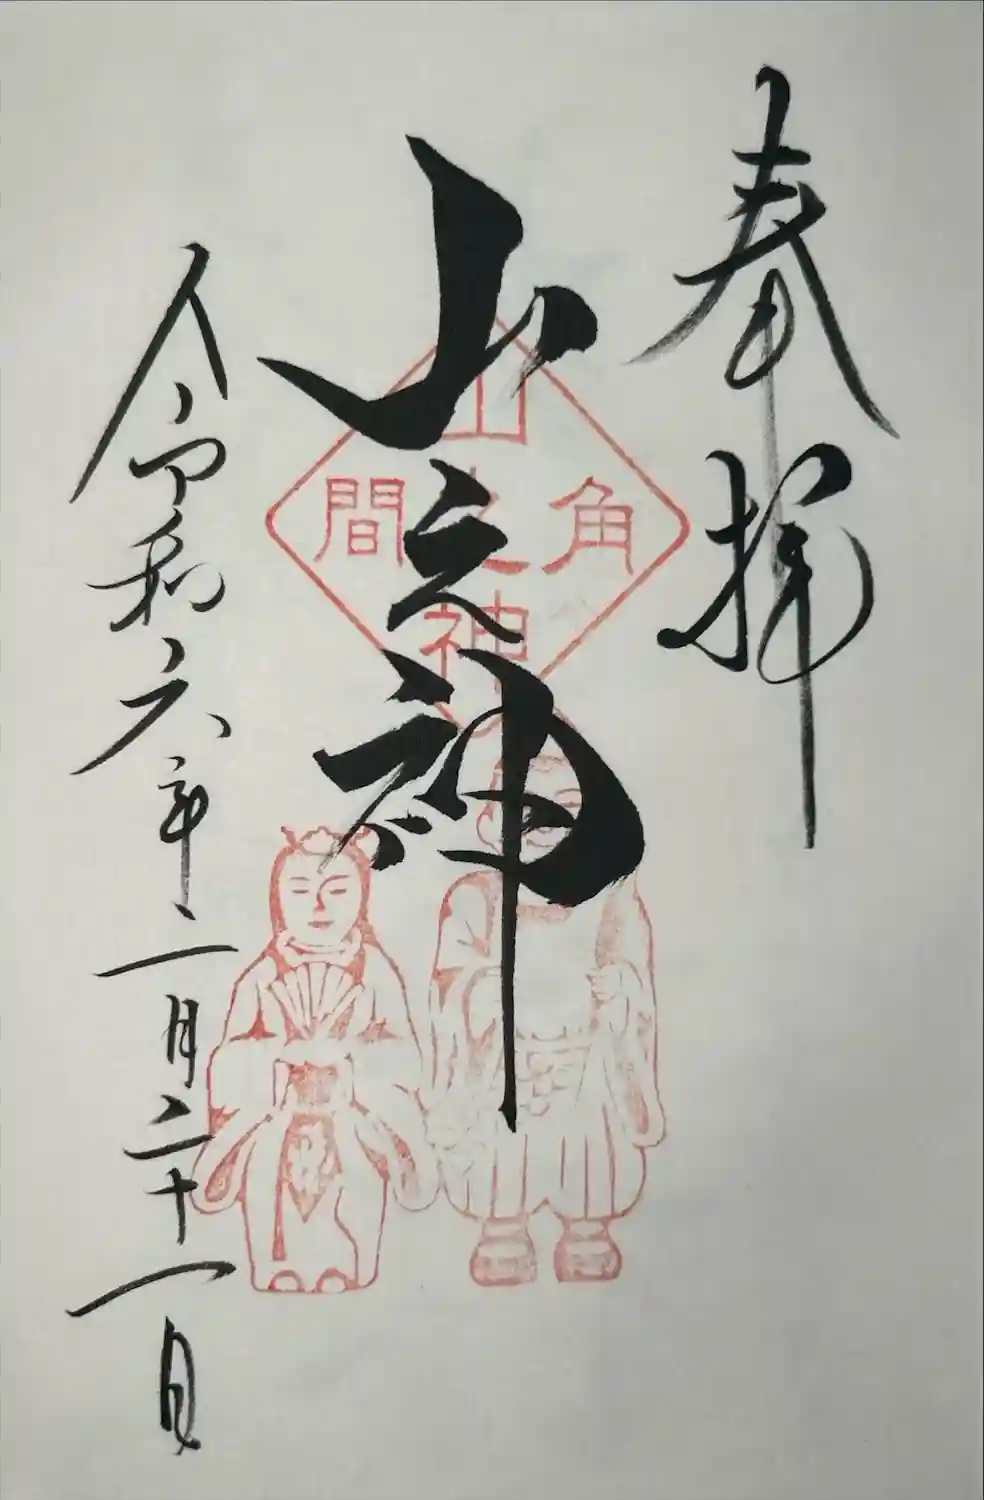 奉拝
山之神
角間
山之神
令和六年二月二十一日